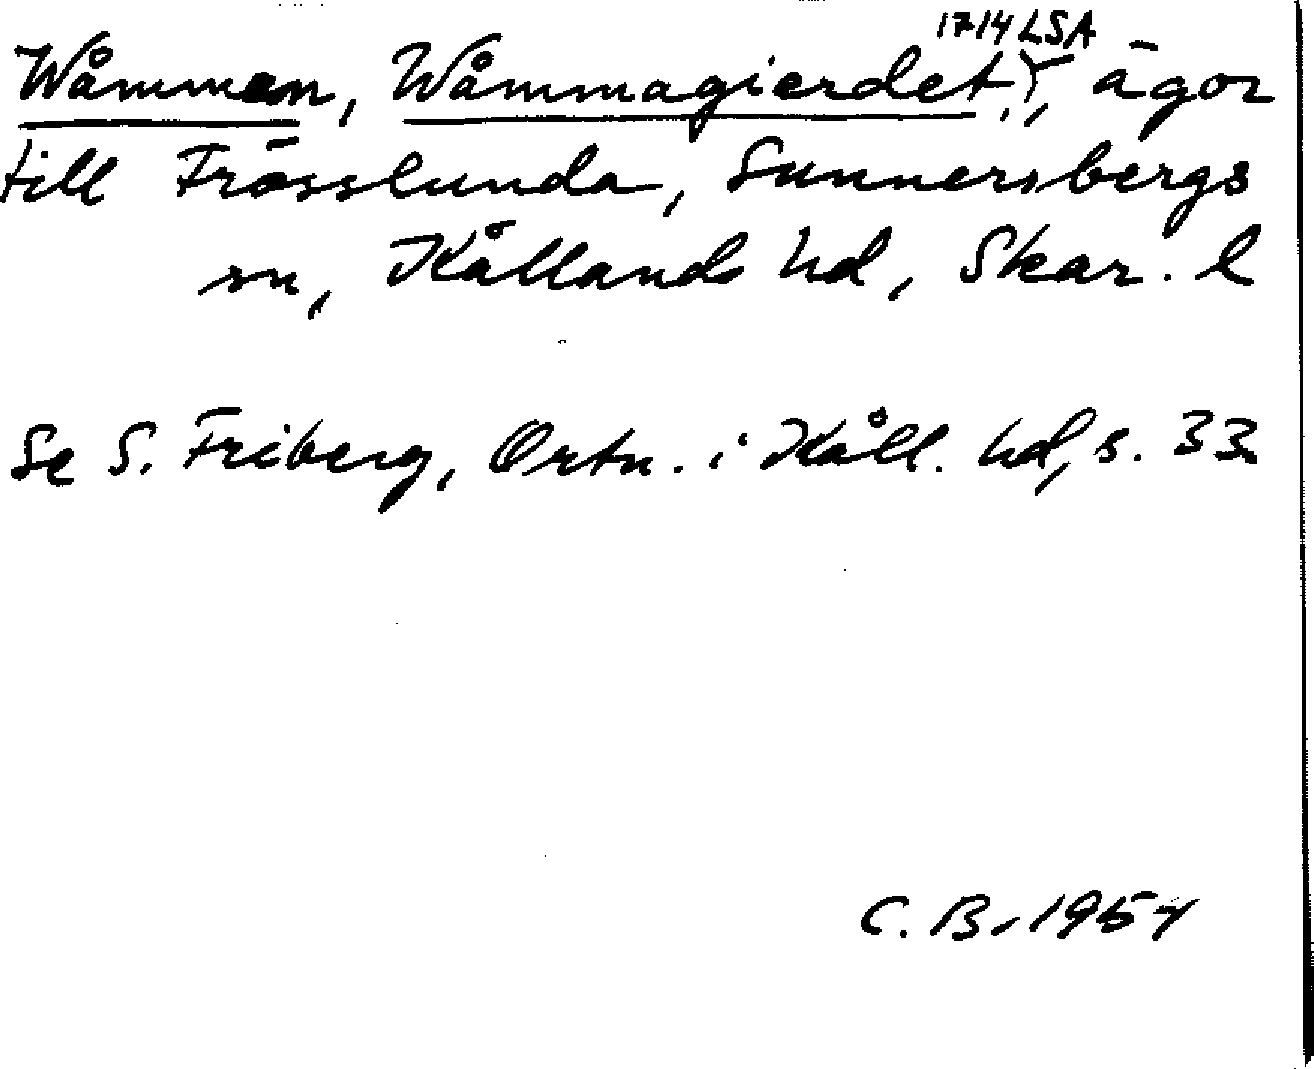 1714 LSA
Wåmmen, Wåmmagierdet, ägor
till Frösslunda, Sunnersbergs
sn, Kållands hd, Skar. l
Se S. Friberg, Ortn. i Kåll. hd, s. 33
C. B. 1957